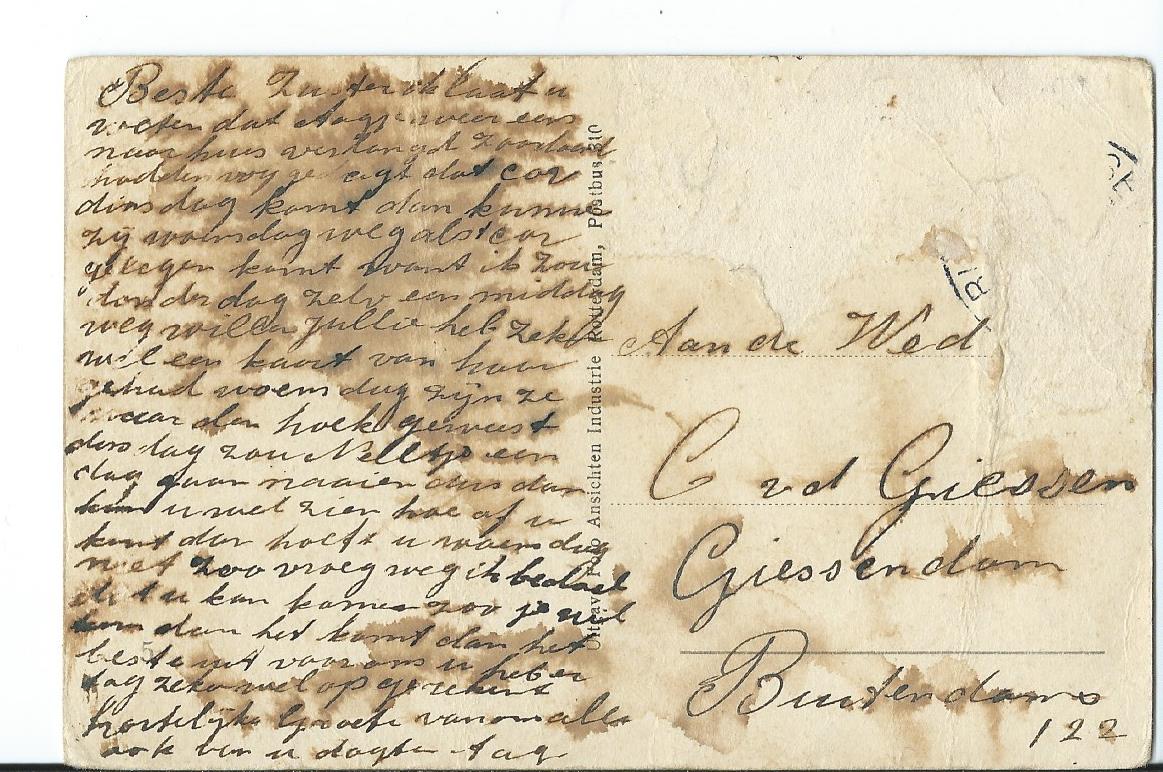 Beste Zuster ik laat u
weten dat Aagje weer eens
naar huis verlangd
hadden wij ge egt dat Cor
dinsdag komt dan kunne
zij woensdag weg als Cor
komt want ik zou
donderdag zelv een middag
weg wille jullie heb zeker
wel een kaart van haar
gehad woensdag zijn ze
naar den hoek geweest
dinsdag zou Neeltje een
dag gaan naaien dus dan
kan u wel zien hoe of u
komt dan hoeft u woensdag
niet zoo vroeg weg ik bedoel
dat u kan komen zoo je wil
kom dan het komt dan het
beste uit voor ons u heb er
tog zeker wel op gerekent
hartelijke Groete van om alle
ook van u dogter tag
Foto Ansichten Industrie Rotterdam, Postbus 310
Aan de Wed
C vd Giessen
Giessendam
Buitendams
122
RI